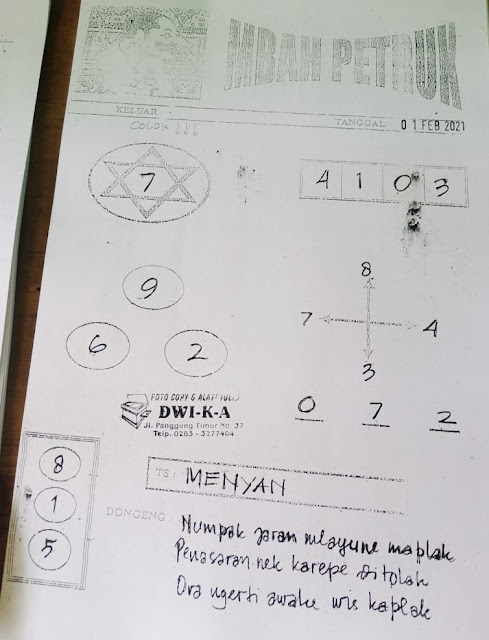 MBAH PETRUK
KELUAR :
TANGGAL : 01 FEB 2021
COLOK !!!
7
4 1 0 3
9
6 2
8
7 4
3
0 7 2
FOTO COPY & ALAT TULIS
DWI-K-A
Jl. Panggung Timur No. 37
Telp. 0283 - 3277404
8
1
5
TS : MENYAN
DONGENG :
Numpak jaran mlayune maplak
Penasaran nek karepe ditolak
Ora ngerti awake wis kaplak